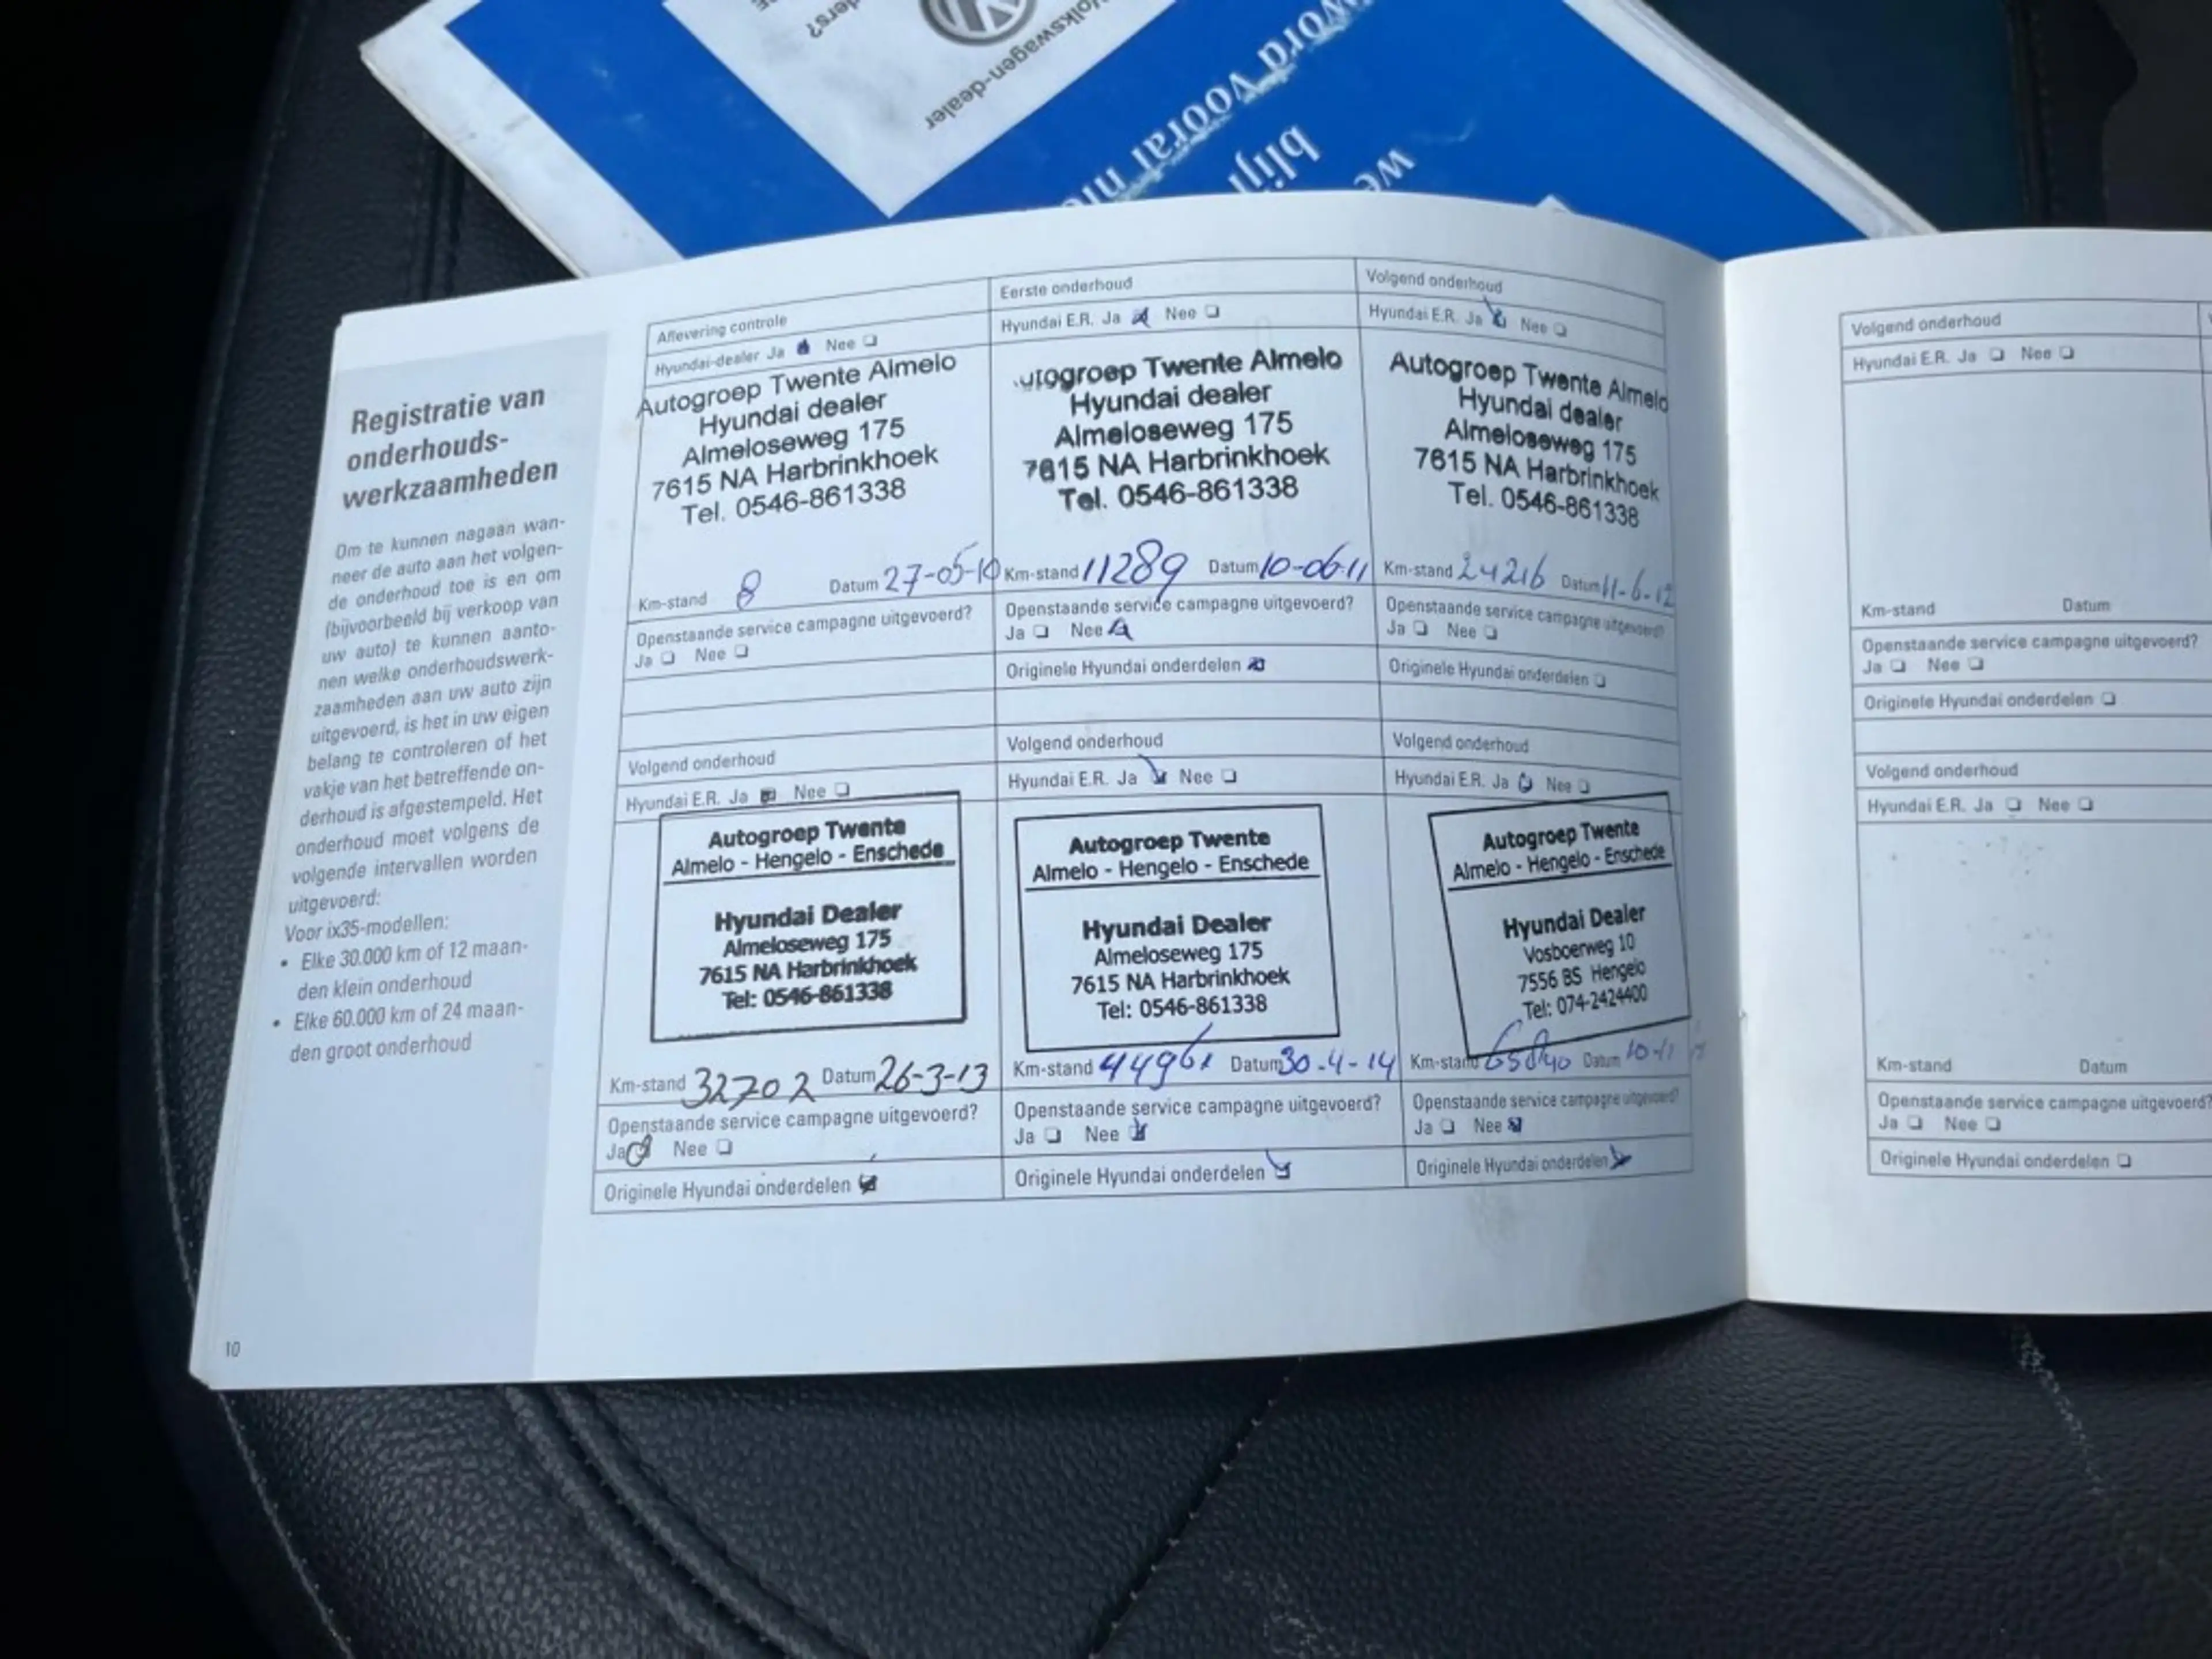 ders?
Volkswagen-dealer
word vooral
blij
we
Registratie van
onderhouds-
werkzaamheden
Om te kunnen nagaan wan-
neer de auto aan het volgen-
de onderhoud toe is en om
(bijvoorbeeld bij verkoop van
uw auto) te kunnen aanto-
nen welke onderhoudswerk-
zaamheden aan uw auto zijn
uitgevoerd, is het in uw eigen
belang te controleren of het
vakje van het betreffende on-
derhoud is afgestempeld. Het
onderhoud moet volgens de
volgende intervallen worden
uitgevoerd:
Voor ix35-modellen:
• Elke 30.000 km of 12 maan-
den klein onderhoud
• Elke 60.000 km of 24 maan-
den groot onderhoud
10
Aflevering controle
Hyundai-dealer Ja Nee
Autogroep Twente Almelo
Hyundai dealer
Almeloseweg 175
7615 NA Harbrinkhoek
Tel. 0546-861338
Km-stand 8 Datum 27-05-10
Openstaande service campagne uitgevoerd?
Ja Nee
Eerste onderhoud
Hyundai E.R. Ja Nee
utogroep Twente Almelo
Hyundai dealer
Almeloseweg 175
7615 NA Harbrinkhoek
Tel. 0546-861338
Km-stand 11289 Datum 10-06-11
Openstaande service campagne uitgevoerd?
Ja Nee
Originele Hyundai onderdelen
Volgend onderhoud
Hyundai E.R. Ja Nee
Autogroep Twente Almelo
Hyundai dealer
Almeloseweg 175
7615 NA Harbrinkhoek
Tel. 0546-861338
Km-stand 24216 Datum 11-6-12
Openstaande service campagne uitgevoerd?
Ja Nee
Originele Hyundai onderdelen
Volgend onderhoud
Hyundai E.R. Ja Nee
Autogroep Twente
Almelo - Hengelo - Enschede
Hyundai Dealer
Almeloseweg 175
7615 NA Harbrinkhoek
Tel: 0546-861338
Km-stand 32702 Datum 26-3-13
Openstaande service campagne uitgevoerd?
Ja Nee
Originele Hyundai onderdelen
Volgend onderhoud
Hyundai E.R. Ja Nee
Autogroep Twente
Almelo - Hengelo - Enschede
Hyundai Dealer
Almeloseweg 175
7615 NA Harbrinkhoek
Tel: 0546-861338
Km-stand 44961 Datum 30-4-14
Openstaande service campagne uitgevoerd?
Ja Nee
Originele Hyundai onderdelen
Volgend onderhoud
Hyundai E.R. Ja Nee
Autogroep Twente
Almelo - Hengelo - Enschede
Hyundai Dealer
Vosboerweg 10
7556 BS Hengelo
Tel: 074-2424400
Km-stand Datum
Openstaande service campagne uitgevoerd?
Ja Nee
Originele Hyundai onderdelen
Volgend onderhoud
Hyundai E.R. Ja Nee
Km-stand Datum
Openstaande service campagne uitgevoerd?
Ja Nee
Originele Hyundai onderdelen
Volgend onderhoud
Hyundai E.R. Ja Nee
Km-stand Datum
Openstaande service campagne uitgevoerd?
Ja Nee
Originele Hyundai onderdelen